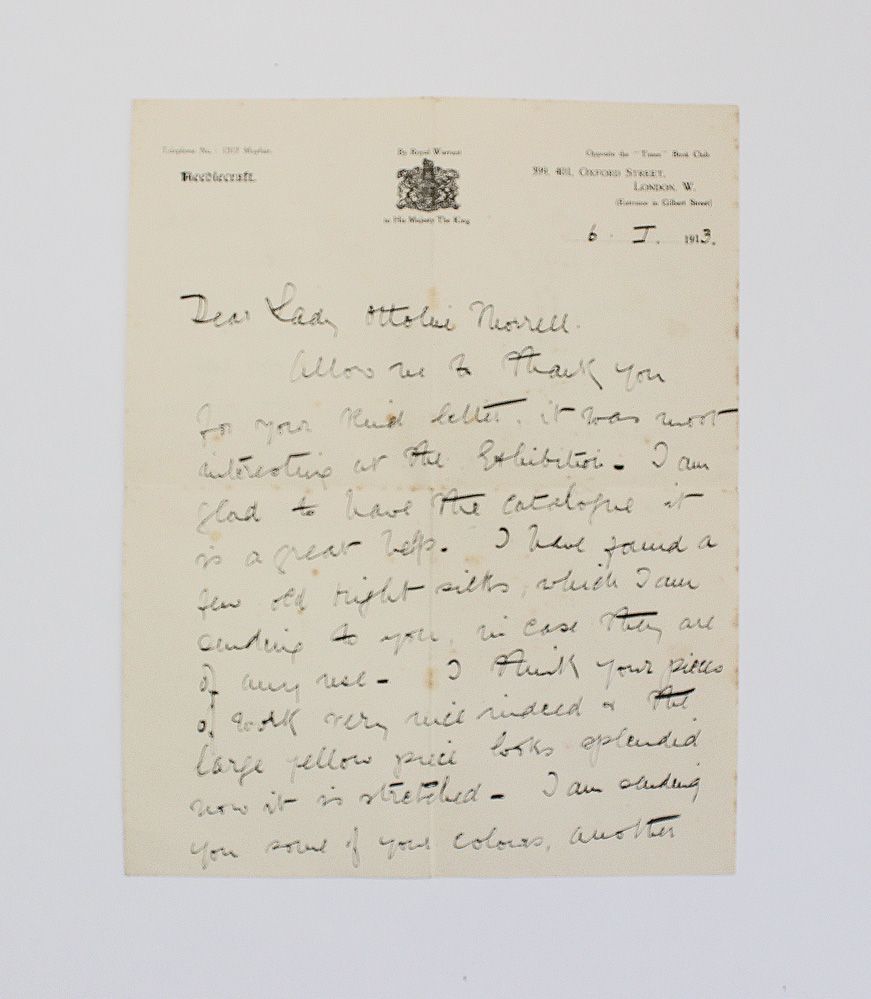 Telephone No. : Mayfair.
Needlecraft.
By Royal Warrant
to His Majesty The King
Opposite the "Times" Book Club
399, 401, Oxford Street,
London, W.
(Entrance in Gilbert Street)
6 . I. 1913.
Dear Lady Ottoline Morrell.
Allow me to thank you
for your kind letter, it was most
interesting at the Exhibition - I am
glad to have the catalogue it
is a great help. I have found a
few old bright silks, which I am
sending to you, in case they are
of any use - I think your pieces
of work very nice indeed & the
large yellow piece looks splendid
now it is stretched - I am sending
you some of your colours, another